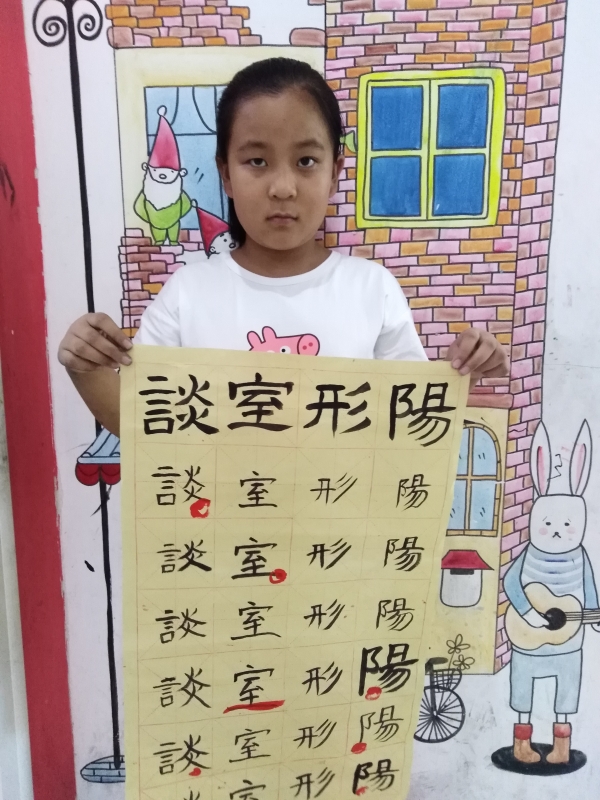 談室形陽
談室形陽
談室形陽
談室形陽
談室形陽
談室形陽
室形陽